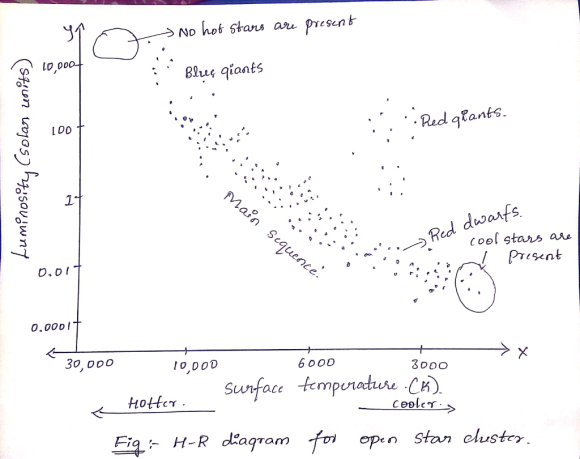 y
No hot stars are present
10,000
Blue giants
100
Red giants.
Luminosity (solar units)
1
Main sequence.
Red dwarfs.
cool stars are
present
0.01
0.0001
x
30,000 10,000 6000 3000
Surface temperature (K).
Hotter. cooler.
Fig :- H-R diagram for open star cluster.